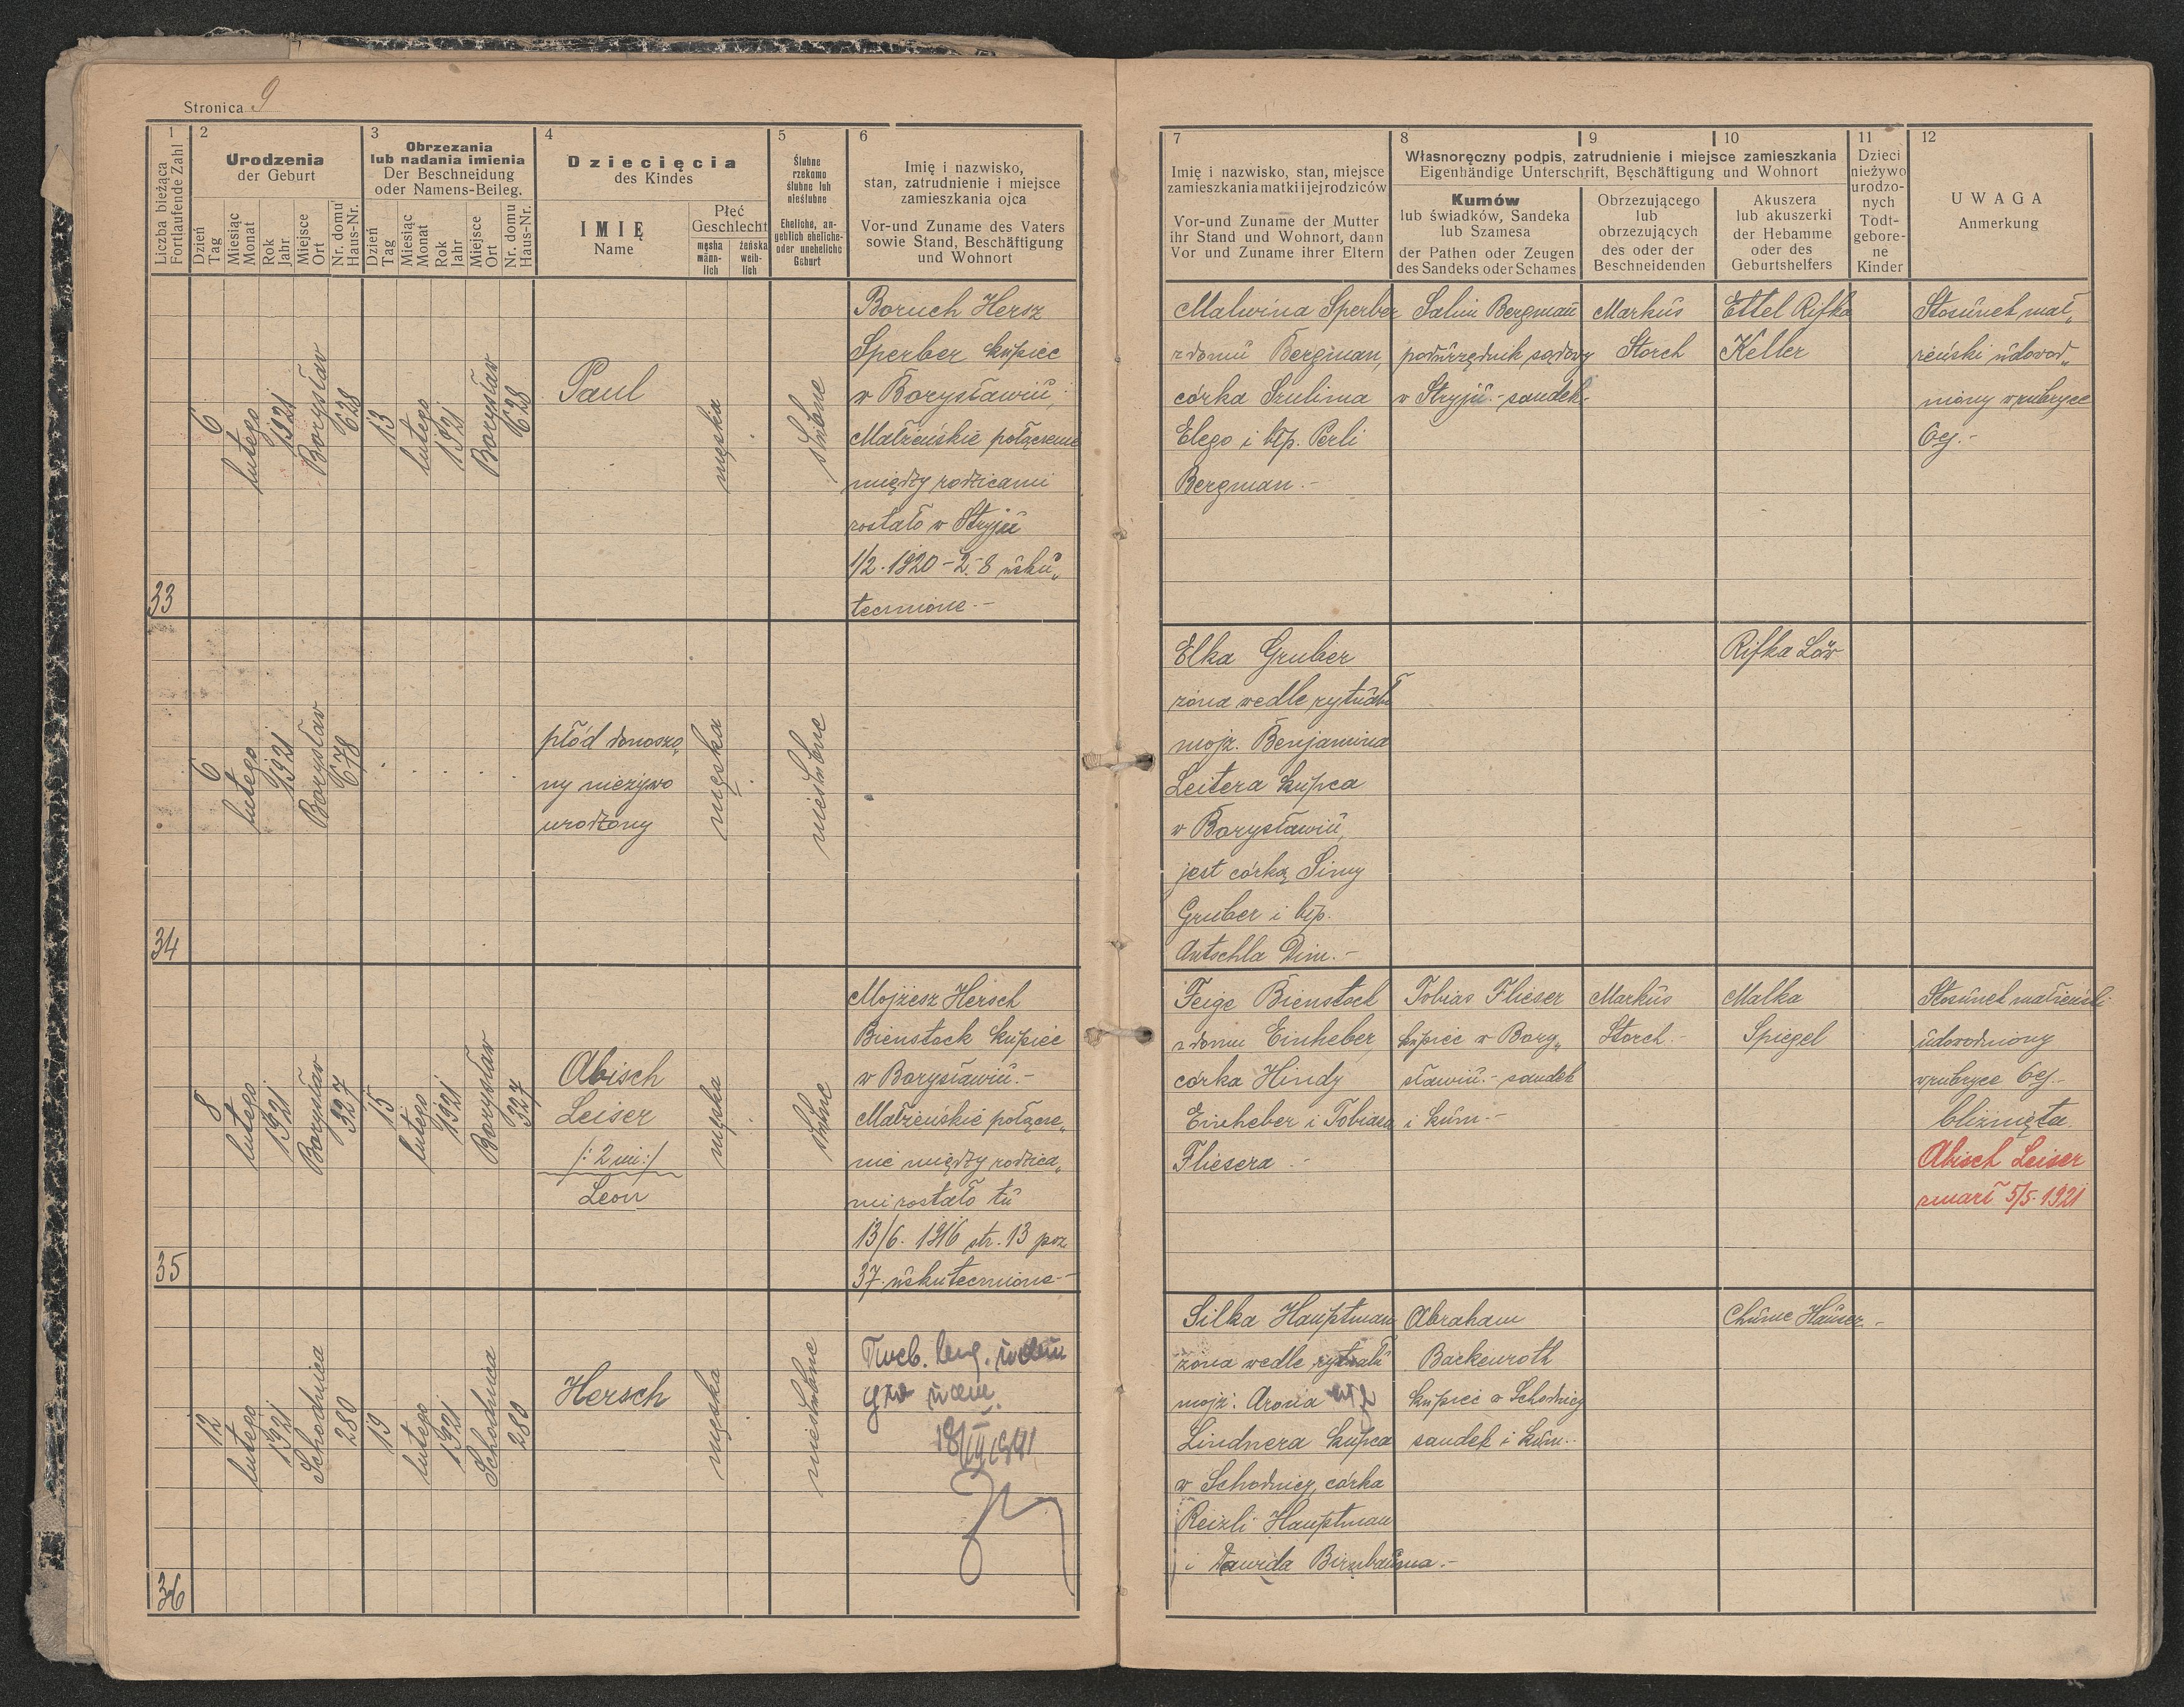 Stronica 9
1
Liczba bieżąca
Fortlaufende Zahl
2
Urodzenia
der Geburt
Dzień
Tag
Miesiąc
Monat
Rok
Jahr
Miejsce
Ort
Nr. domu
Haus-Nr.
3
Obrzezania
lub nadania imienia
Der Beschneidung
oder Namens-Beileg.
Dzień
Tag
Miesiąc
Monat
Rok
Jahr
Miejsce
Ort
Nr. domu
Haus-Nr.
4
Dziecięcia
des Kindes
IMIĘ
Name
Płeć
Geschlecht
męska
männ-
lich
żeńska
weib-
lich
5
Ślubne
rzekomo
ślubne lub
nieślubne
Eheliche, an-
geblich eheliche-
oder uneheliche
Geburt
6
Imię i nazwisko,
stan, zatrudnienie i miejsce
zamieszkania ojca
Vor-und Zuname des Vaters
sowie Stand, Beschäftigung
und Wohnort
7
Imię i nazwisko, stan, miejsce
zamieszkania matki i jej rodziców
Vor-und Zuname der Mutter
ihr Stand und Wohnort, dann
Vor und Zuname ihrer Eltern
8
9
10
Własnoręczny podpis, zatrudnienie i miejsce zamieszkania
Eigenhändige Unterschrift, Beschäftigung und Wohnort
Kumów
lub świadków, Sandeka
lub Szamesa
der Pathen oder Zeugen
des Sandeks oder Schames
Obrzezującego
lub
obrzezujących
des oder der
Beschneidenden
Akuszera
lub akuszerki
der Hebamme
oder des
Geburtshelfers
11
Dzieci
nieżywo
urodzo-
nych
Todt-
gebore-
ne
Kinder
12
UWAGA
Anmerkung
33
6
lutego
1921
Borysław
628
13
lutego
1921
Borysław
628
Paul
męska
ślubne
Boruch Hersz
Sperber kupiec
w Borysławiu,
Małżeńskie połączenie
między rodzicami
zostało w Stryju
1/2. 1920 - 2. 8 usku„
tecznione.-
Malwina Sperber
z domu Bergman,
córka Srulima
Elego i błp. Perli
Bergman.-
Salim Bergman
podurzędnik sądowy
w Stryju.- sandek.
Markus
Storch
Ettel Rifka
Keller
Stosunek mał„
żeński udowod„
niony w rubryce
6ej.-
34
6
lutego
1921
Borysław
678
płód donoszo„
ny nieżywo
urodzony
męska
nieślubne
Elka Gruber
żona wedle rytuału
mojż. Benjamina
Leitera kupca
w Borysławiu,
jest córką Simy
Gruber i błp.
Antschla Dim.-
Rifka Löw
35
8
lutego
1921
Borysław
327
15
lutego
1921
Borysław
327
Abisch
Leiser
/: 2 im :/
Leon
męska
ślubne
Mojżesz Hersch
Bienstock kupiec
w Borysławiu.-
Małżeńskie połącze„
nie między rodzica„
mi zostało tu
13/6. 1916 str. 13 poz
37. uskutecznione.-
Feige Bienstock
z domu Einheber,
córka Hindy
Einheber i Tobiasza
Fliesera.-
Tobias Flieser
kupiec w Bory„
sławiu.- sandek
i kum.-
Markus
Storch.-
Malka
Spiegel
Stosunek małżeński
udowodniony
w rubryce 6ej.-
bliźnięta.
Abisch Leiser
zmarł 5/5. 1921
36
12
lutego
1921
Schodnica
280
19
lutego
1921
Schodnica
280
Hersch
męska
nieślubne
1941
Silka Hauptman
żona wedle rytuału
mojż. Arona
Lindnera kupca
w Schodnicy, córka
Reizli Hauptman
i Dawida Birnbauma.-
Abraham
Backenroth
kupiec w Schodnicy
sandek i kum.-
Chume Hauser.-